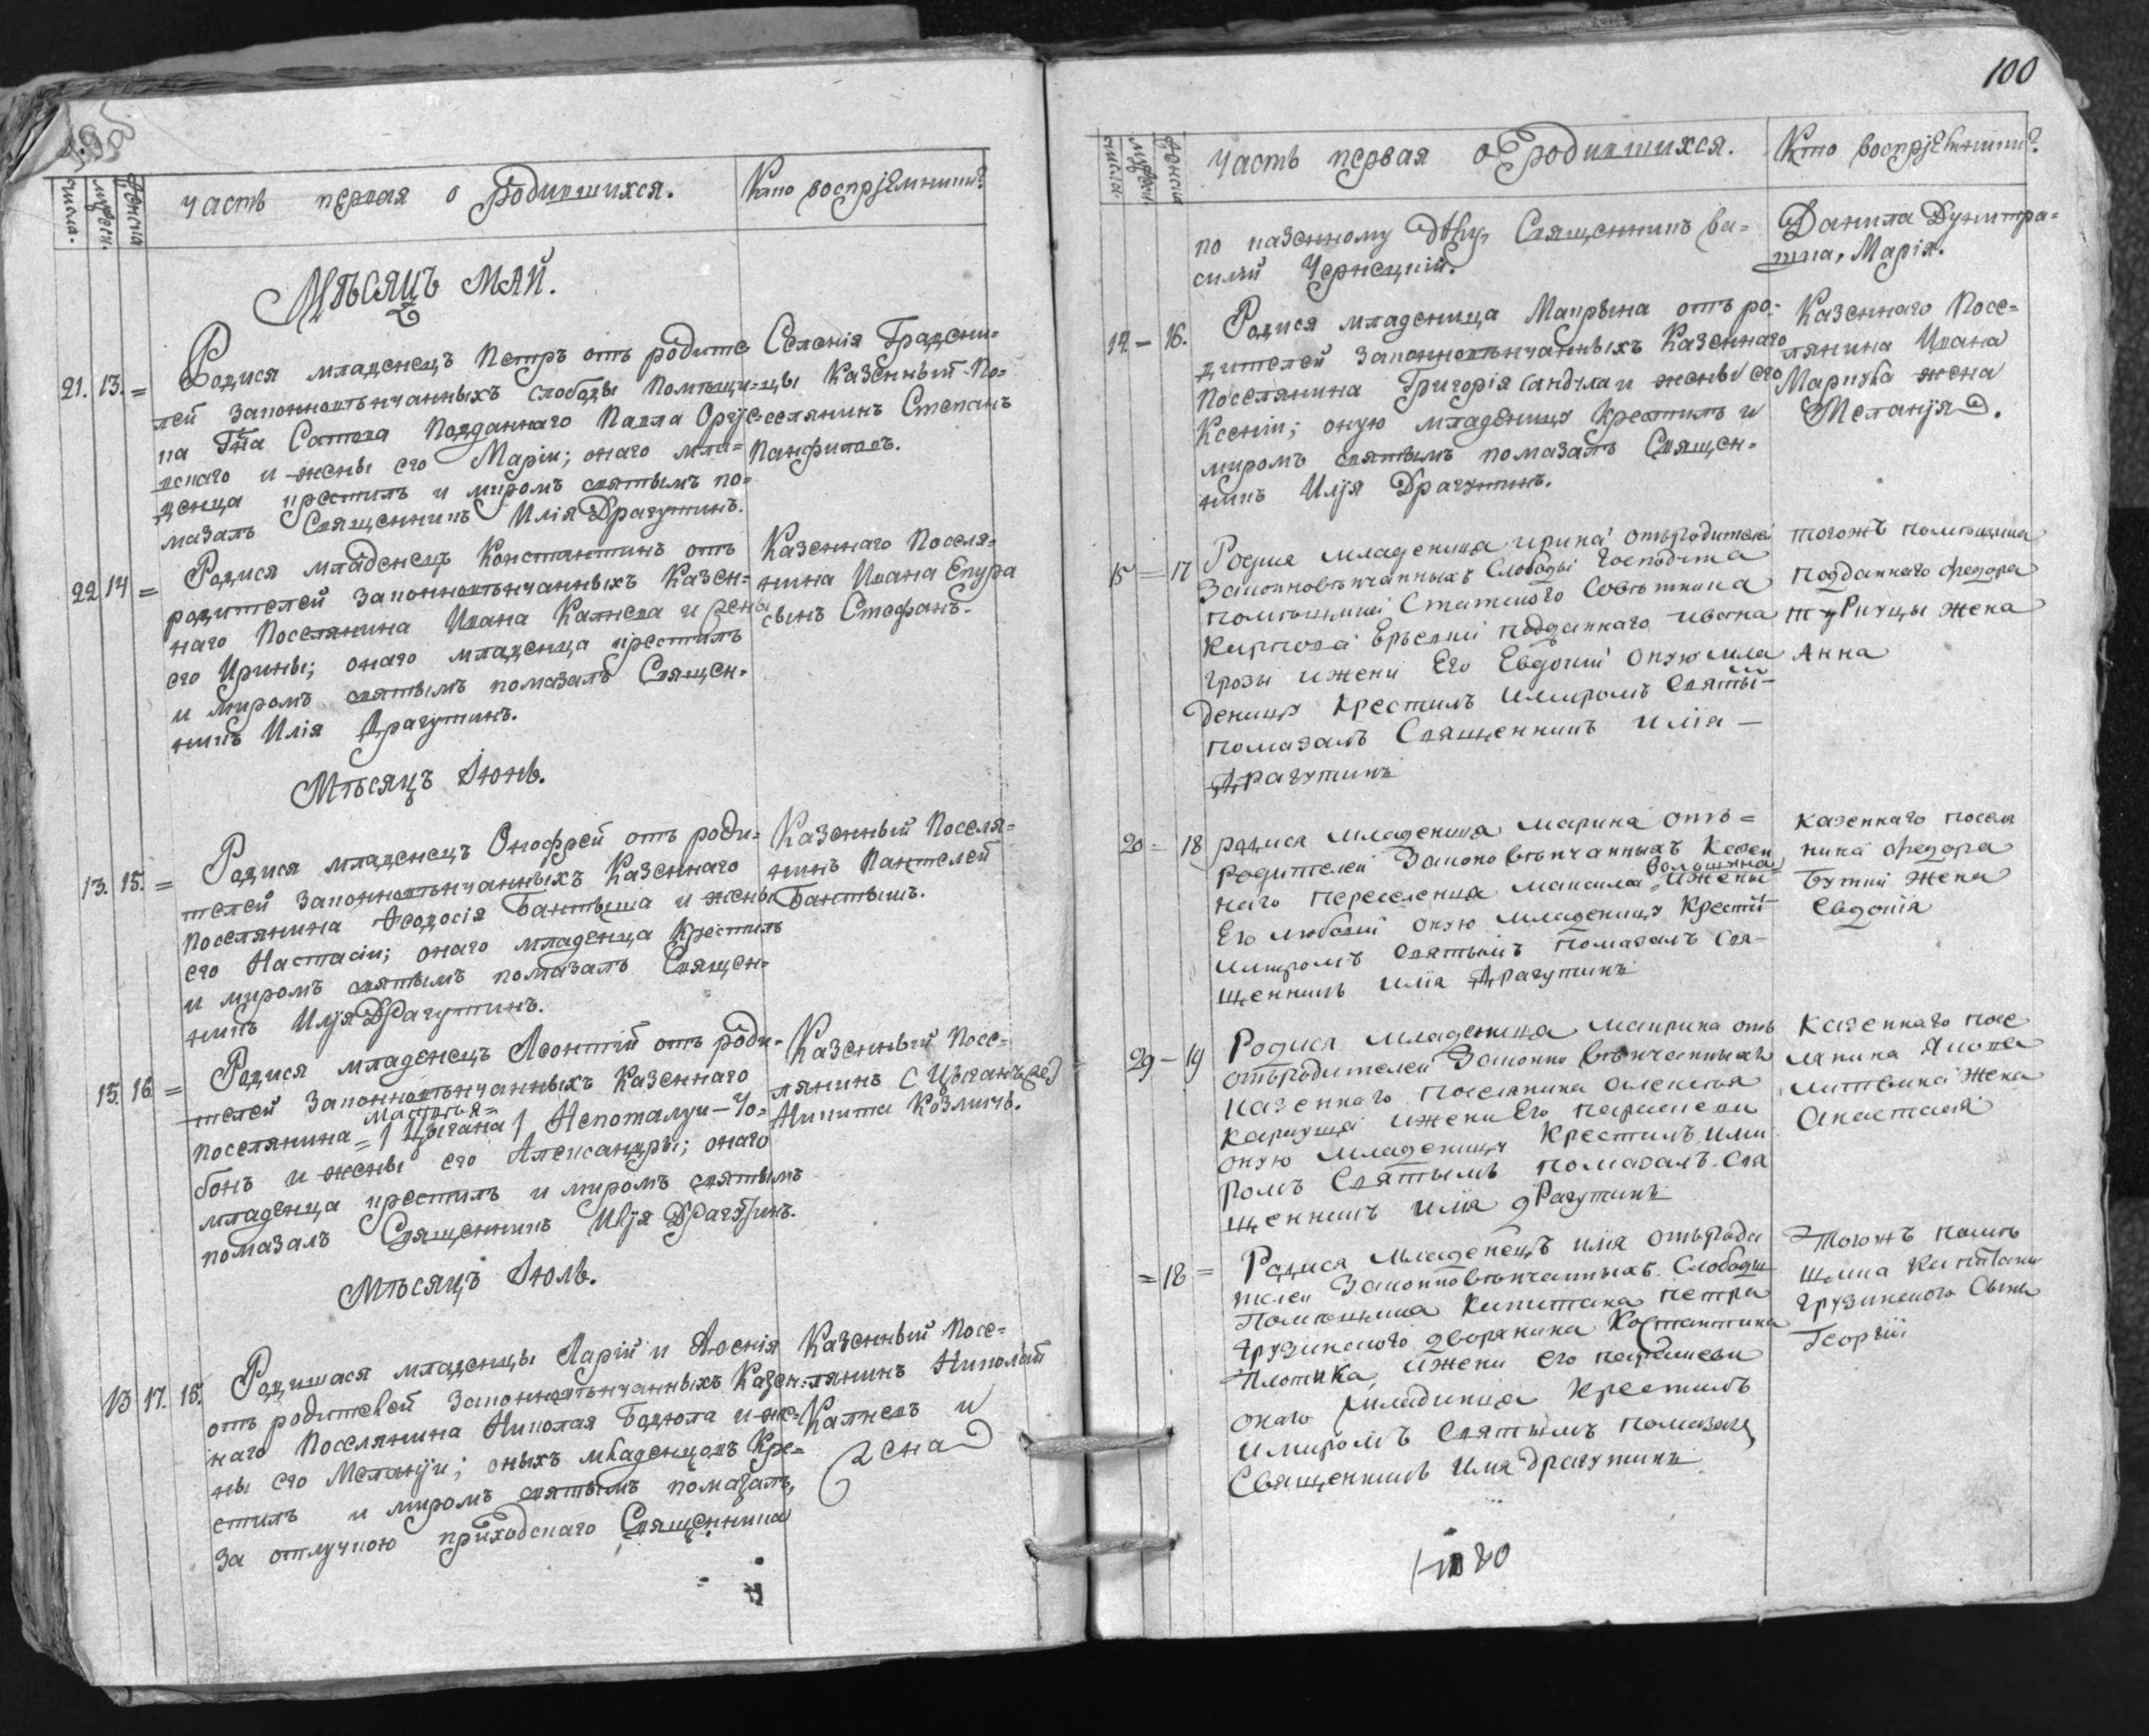 числа.
мужеск.
женска
часть первая о Родившихся.
Кто воспрıемники?
Мѣсяцъ Май.
21. 13. =
Родися младенецъ Петръ отъ родите
лей законновѣнчанныхъ слободы помѣщи=
ка Гна Сатова подданнаго Павла
и жены его Маріи; онаго мла=
денца крестилъ и миромъ святымъ по=
мазалъ Священникъ Илія Драгутинъ.
Селенія Градени=
цы Казенный По=
селянинъ Степанъ
Панфиловъ.
22 14 =
Родися младенецъ Константинъ отъ
родителей законновѣнчанныхъ Казен=
наго Поселянина Ивана Калнева и жены
его Ирины; онаго младенца крестилъ
и миромъ святымъ помазалъ Священ=
никъ Илія Драгутинъ.
Казеннаго Поселя=
нина Ивана Епура
сынъ Стефанъ.
Мѣсяцъ Іюнь.
13. 15. =
Родися младенецъ Онофрей отъ роди=
телей законновѣнчанныхъ Казеннаго
Поселянина Ѳеодосія Бантыша и жены
его Настасіи; онаго младенца крестилъ
и миромъ святымъ помазалъ Священ=
никъ Илїя Драгутинъ.
Казенный Поселя=
нинъ Пантелей
Бантышъ.
15. 16 =
Родися младенецъ Леонтій отъ роди=
телей законновѣнчанныхъ Казеннаго
поселянина = / Цыгана / Непоталуи - Чо=
бонъ и жены его Александры; онаго
младенца крестилъ и миромъ святымъ
помазалъ Священникъ Илїя Драгутинъ.
Казенный Посе=
лянинъ (Цыганъ)
Никита Козмичъ.
Мѣсяцъ Іюль.
13 17. 15.
Родишася младенцы Ларій и
отъ родителей законновѣнчанныхъ Казен=
наго Поселянина Николая Бодюла и же=
ны его Меланїи; оныхъ младенцовъ кре=
стилъ и миромъ святымъ помазалъ,
за отлучкою приходскаго Священника
Казенный Посе=
лянинъ Николай
Калневъ и
жена
100
числа
мужеск.
женска
часть первая о Родившихся.
Кто воспрıемники?
по казенному дѣлу, Священникъ Ва=
силій Чернецкій.
Данила
Марія.
14 - 16.
Родися младеница Маирѣна отъ ро=
дителей законновѣнчанныхъ Казеннаго
Поселянина Григорія и жены его
Ксеніи; оную младеницу крестилъ и
миромъ святымъ помазалъ Священ=
никъ Илїя Драгутинъ.
Казеннаго Посе=
лянина Ивана
жена
Меланїя.
15 = 17
Родися младеница ирина отъ родителей
законновѣнчанныхъ слободы господина
помѣщика Статского Совѣтника
Кирпова подданнаго ивана
грозы и жени Его Евдокии оную мла
деницу крестилъ и миромъ святы̃
помазалъ Священникъ илїа
Драгутинъ
тогожъ помѣщика
подданнаго федора
жена
Анна
20 = 18
родися младеница марина отъ =
родителей законовѣнчанныхъ казен
наго переселенца и жены
Его любови оную младеницу крести̃
и миромъ святымъ помазалъ свя-
щенникъ илїа Драгутинъ
казеннаго посели
нина федора
жена
Евдокїя
29 - 19
Родися младеница маирина отъ
отъ родителей законно вѣнчанныхъ
казеннаго поселянина алексѣя
и жени Его параскеви
оную младеницу крестилъ и ми
ромъ святымъ помазалъ свя
щенникъ илїа Драгутинъ
казеннаго посе
лянина Якова
литвина жена
Анастасїя
= 18 =
Родися младенецъ илїя отъ роди
телей законновѣнчанныхъ слободы
помѣщика капитана петра
грузинского дворянина Костантина
Плотика, и жени его параскеви
онаго младинца крестилъ
и миромъ святымъ помазалъ
Священникъ илїя драгутинъ
тогожъ помѣ
щика капитана
грузинского сынъ
Георгїй